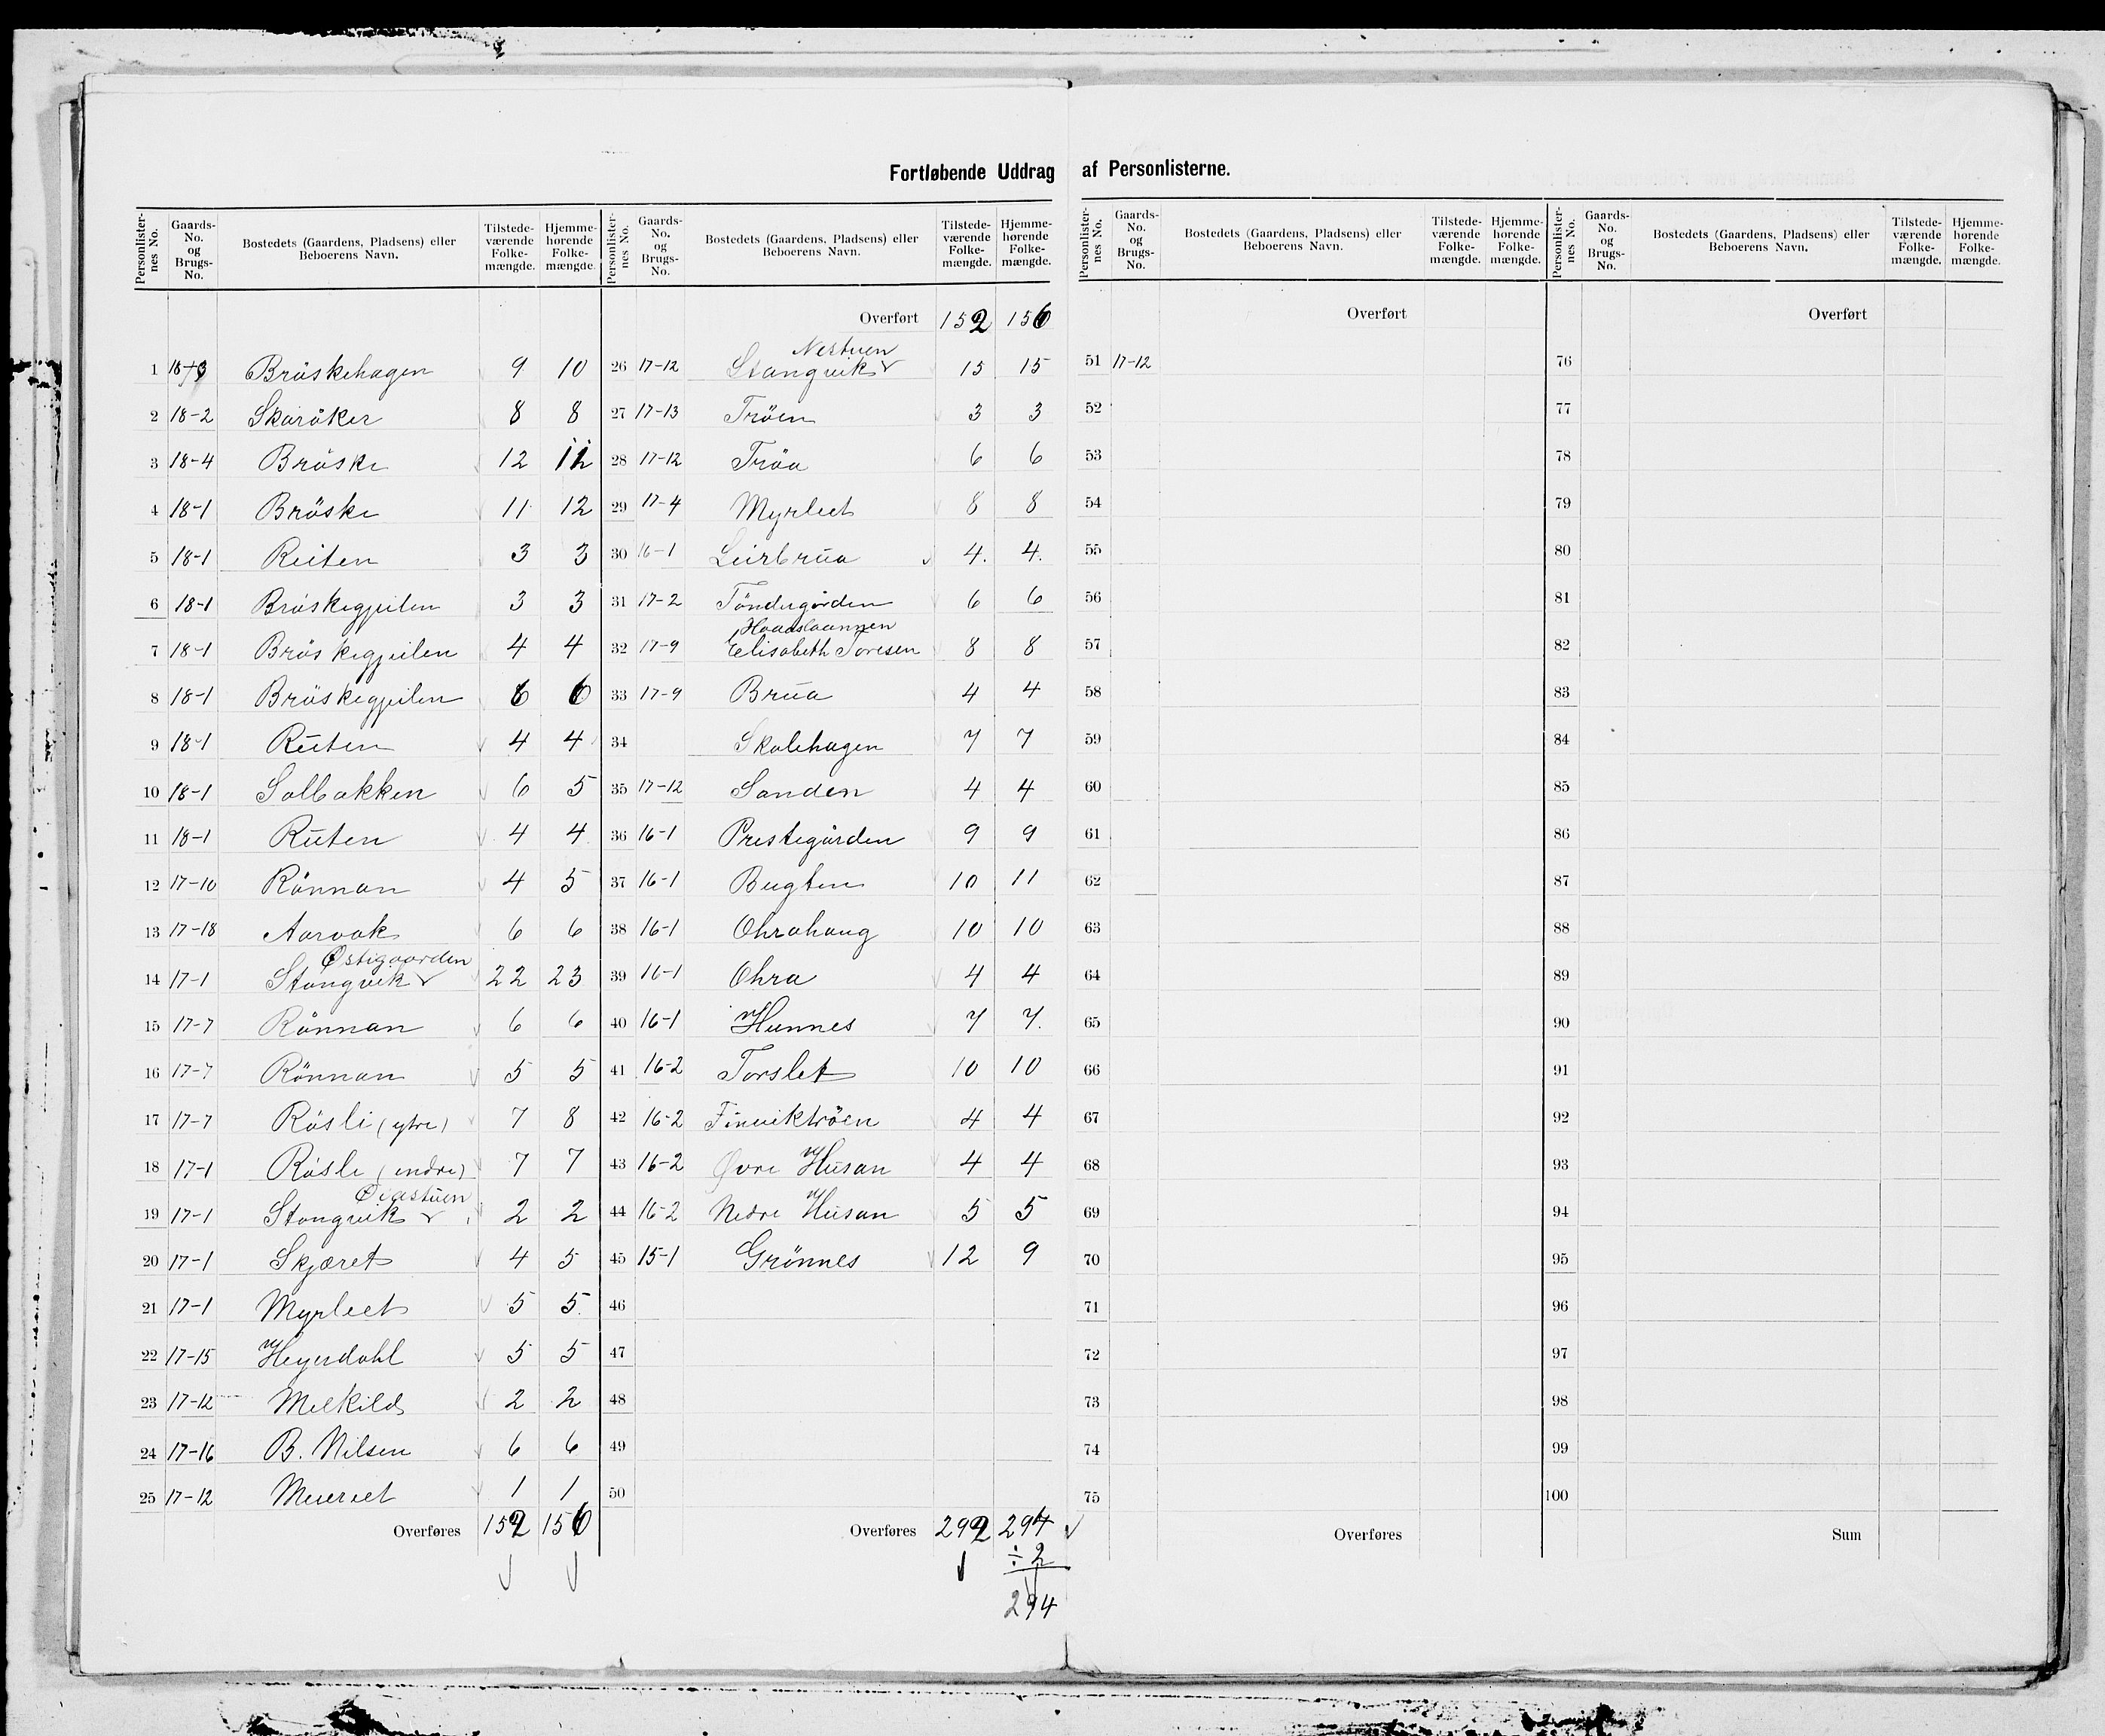 Fortløbende Uddrag af Personlisterne.
Personlister-nes No. Gaards-No. og Brugs-No. Bostedets (Gaardens, Pladsens) eller Beboerens Navn. Tilstede-værende Folke-mængde. Hjemme-hørende Folke-mængde.
1 Bröskehagen 9 10
2 18-2 Skaråker 8 8
3 18-4 Bröske 12
4 18-1 Bröske 11 12
5 18-1 Reiten 3 3
6 18-1 Bröskegjeilen 3 3
7 18-1 Bröskegjeilen 4 4
8 18-1 Bröskegjeilen 6 6
9 18-1 Reiten 4 4
10 18-1 Solbakken 6 5
11 18-1 Reiten 4 4
12 17-10 Rönnan 4 5
13 17-18 Aarvak 6 6
Østigaarden
14 17-1 Stangvik 22 23
15 17-7 Rönnan 6 6
16 17-7 Rönnan 5 5
17 17-7 Rösli (ytre) 7 8
18 17-1 Rösli (indre) 7 7
19 17-1 Stangvik 2 2
20 17-1 Skjæret 4 5
21 17-1 Myrleet 5 5
22 17-15 Heyerdahl 5 5
23 17-12 Melkild 2 2
24 17-16 B. Nilsen 6 6
25 17-12 Meieriet 1 1
Overføres 152 156
Personlister-nes No. Gaards-No. og Brugs-No. Bostedets (Gaardens, Pladsens) eller Beboerens Navn. Tilstede-værende Folke-mængde. Hjemme-hørende Folke-mængde.
Overført 152 156
Nerstuen
26 17-12 Stangvik 15 15
27 17-13 Tröen 3 3
28 17-12 Tröa 6 6
29 17-4 Myrleet 8 8
30 16-1 Leirbrua 4. 4.
31 17-2 Töndergården 6 6
32 17-9 Elisabeth Toresen 8 8
33 17-9 Brua 4 4
34 Skolehagen 7 7
35 17-12 Sanden 4 4
36 16-1 Prestegården 9 9
37 16-1 Bugten 10 11
38 16-1 Ohrahaug 10 10
39 16-1 Ohra 4 4
40 16-1 Hunnes 7 7.
41 16-2 Torslet 10 10
42 16-2 Finviktröen 4 4
43 16-2 Øvre Husan 4 4
44 16-2 Nedre Husan 5 5
45 15-1 Grönnes 12 9
46
47
48
49
50
Overføres 292 294
÷ 2
294
Personlister-nes No. Gaards-No. og Brugs-No. Bostedets (Gaardens, Pladsens) eller Beboerens Navn. Tilstede-værende Folke-mængde. Hjemme-hørende Folke-mængde.
Overført
51 17-12
52
53
54
55
56
57
58
59
60
61
62
63
64
65
66
67
68
69
70
71
72
73
74
75
Overføres
Personlister-nes No. Gaards-No. og Brugs-No. Bostedets (Gaardens, Pladsens) eller Beboerens Navn. Tilstede-værende Folke-mængde. Hjemme-hørende Folke-mængde.
Overført
76
77
78
79
80
81
82
83
84
85
86
87
88
89
90
91
92
93
94
95
96
97
98
99
100
Sum